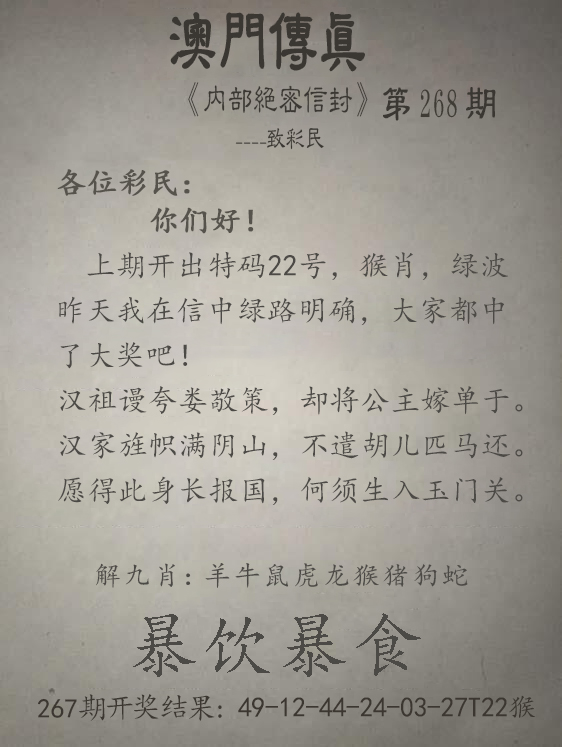 澳門傳真
《内部絕密信封》第268期
----致彩民
各位彩民：
你们好！
上期开出特码22号，猴肖，绿波
昨天我在信中绿路明确，大家都中
了大奖吧！
汉祖谩夸娄敬策，却将公主嫁单于。
汉家旌帜满阴山，不遣胡儿匹马还。
愿得此身长报国，何须生入玉门关。
解九肖：羊牛鼠虎龙猴猪狗蛇
暴饮暴食
267期开奖结果：49-12-44-24-03-27T22猴